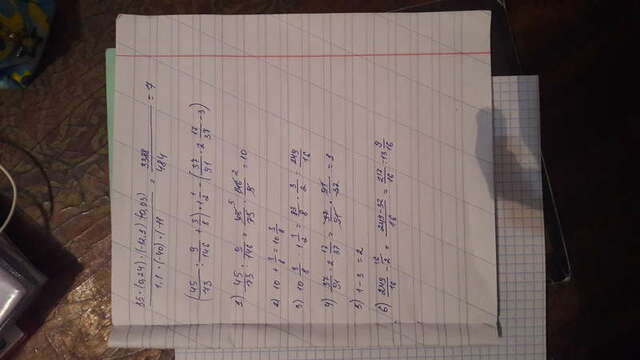 35 · (0,24) · (-12,1) · (0,05) / 1,1 · (-40) · (-11 = 3388 / 484 = 7
(45/73 : 9/146 + 3/8) · 1 1/2 - (37/91 · 2 17/37 - 3)
1) 45/73 : 9/146 = 45/73 · 146/9 = 10
2) 10 + 3/8 = 10 3/8
3) 10 3/8 · 1 1/2 = 83/8 · 3/2 = 249/16
4) 37/91 · 2 17/37 = 37/91 · 91/37 = 1
5) 1 - 3 = 2
6) 249/16 - 2 = 249-32/16 = 217/16 = 13 9/16